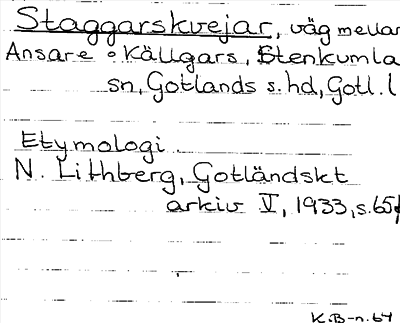 Staggarskvejar, väg mellan
Ansare o Källgars, Stenkumla
sn, Gotlands s. hd, Gotl. l
Etymologi
N. Lithberg, Gotländskt
arkiv V, 1933, s. 65f
K.B-n. 64